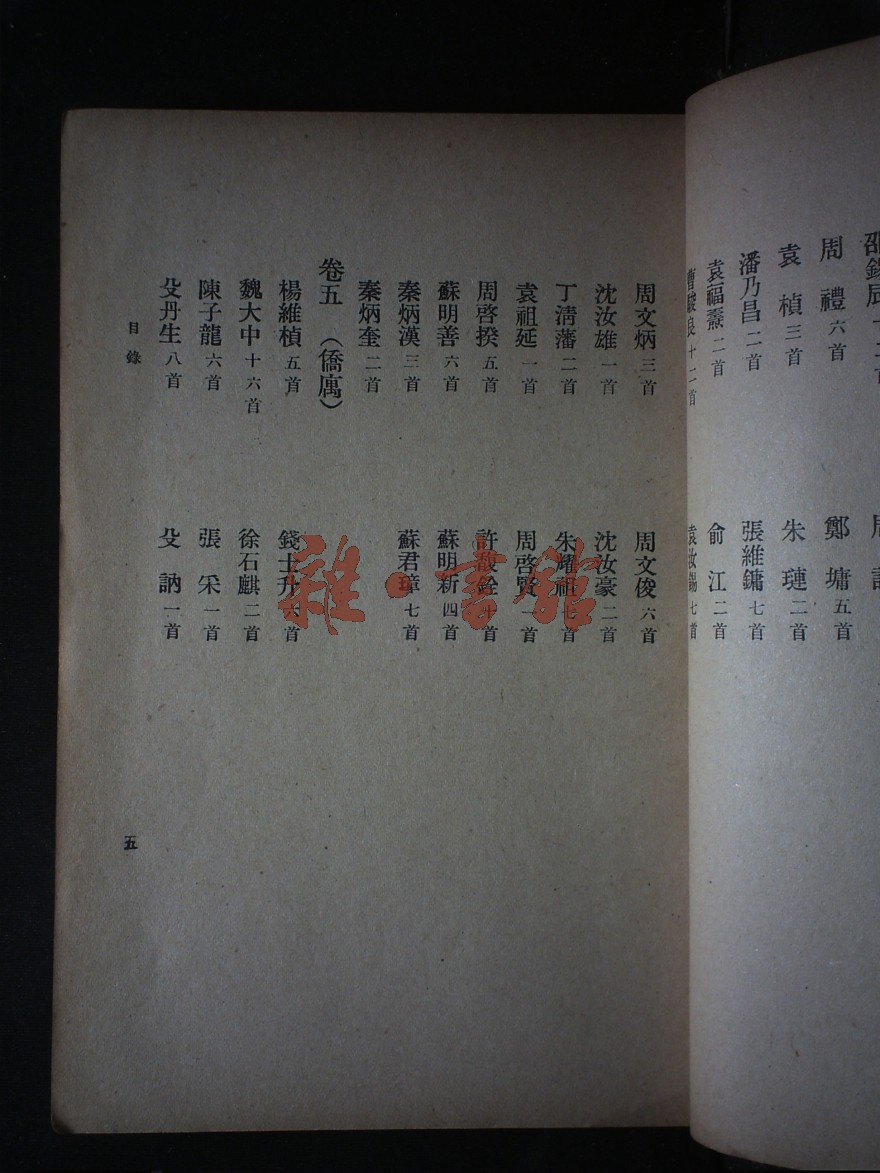 周禮六首 鄭墉五首
袁楨三首 朱璉二首
潘乃昌二首 張維鏞七首
袁福 二首 俞江二首
曹駿良十二首 袁汝錫七首
周文炳三首 周文俊六首
沈汝雄一首 沈汝豪二首
丁清藩二首 朱耀祖七首
袁祖延一首 周啓賢 首
周啓揆五首 許 銓 首
蘇明善六首 蘇明新四首
秦炳漢三首 蘇君璋七首
秦炳奎二首
卷五（僑寓）
楊維楨五首 錢士升六首
魏大中十六首 徐石麒二首
陳子龍六首 張采一首
殳丹生八首 殳訥一首
目錄
五
雜·書館